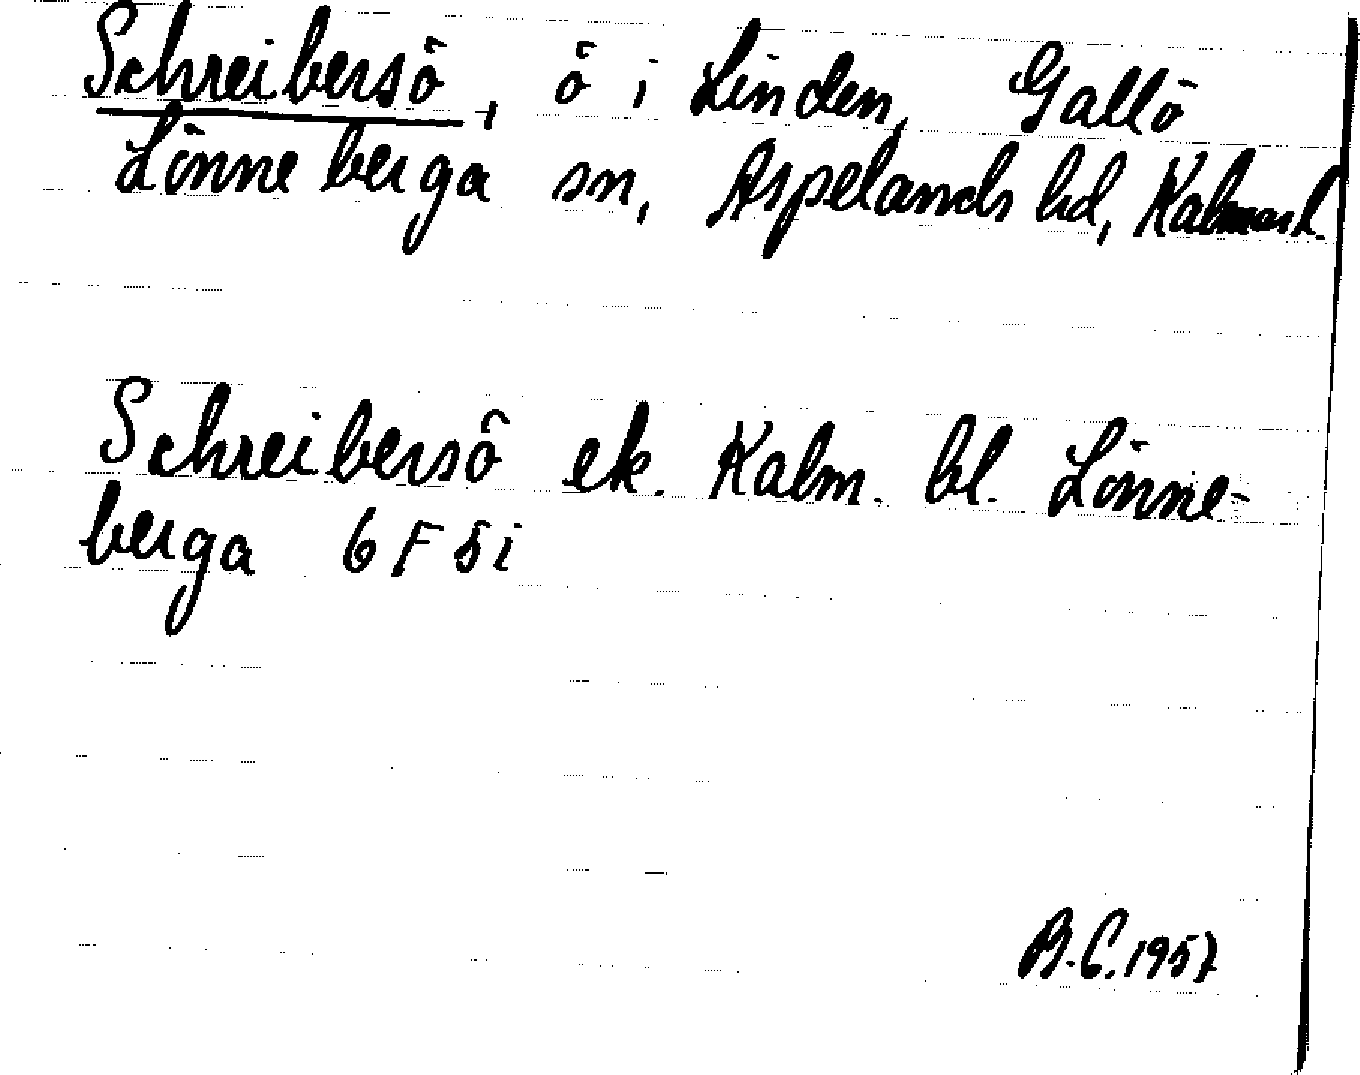 Schreibersö, ö i Linden, Gallö
Lönneberga sn, Aspelands hd, Kalmar l.
Schreibersö ek. Kalm. bl. Lönne-
berga 6 F 5 i
B.C. 1957